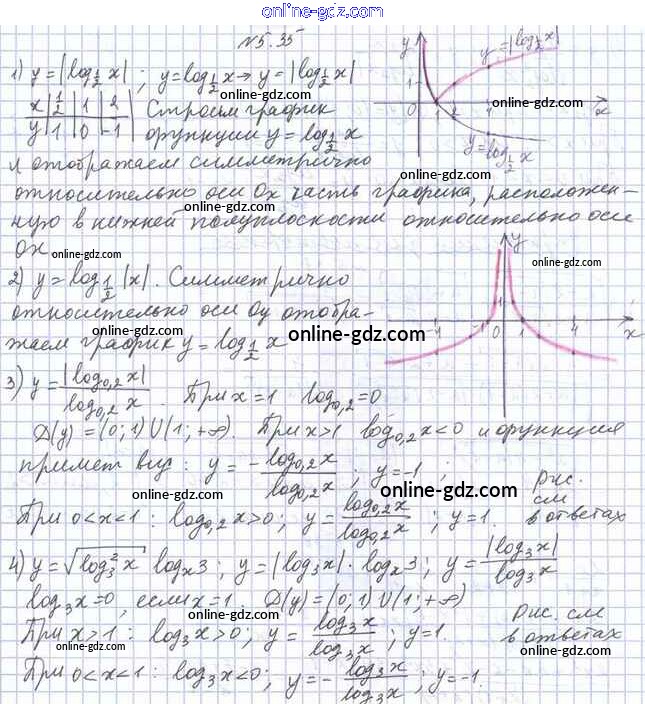 online-gdz.com
№5.35
1) y=|log_{1/2} x| ; y=log_{1/2} x → y=|log_{1/2} x|
x | 1/2 | 1 | 2 | Строим график
y | 1 | 0 | -1 | функции y=log_{1/2} x
и отображаем симметрично
относительно оси Ox часть графика, расположен-
ную в нижней полуплоскости относительно оси
Ox
y
y=|log_{1/2} x|
1
0 2 4 x
y=log_{1/2} x
online-gdz.com
online-gdz.com
online-gdz.com
online-gdz.com
online-gdz.com
online-gdz.com
2) y=log_{1/2} |x|. Симметрично
относительно оси Oy отобра-
жаем график y=log_{1/2} x
y
1
-4 -1 0 1 4 x
online-gdz.com
online-gdz.com
online-gdz.com
3) y=|log_{0,2} x|/log_{0,2} x. При x=1 log_{0,2}=0
D(y)=(0;1)∪(1;+∞). При x>1 log_{0,2} x<0 и функция
примет вид: y=-log_{0,2} x/log_{0,2} x ; y=-1 ;
При 0<x<1: log_{0,2} x>0; y=log_{0,2} x/log_{0,2} x ; y=1.
Рис.
см
в ответах
online-gdz.com
online-gdz.com
online-gdz.com
4) y=√(log_3^2 x) log_x 3; y=|log_3 x|·log_x 3; y=|log_3 x|/log_3 x
log_3 x=0, если x=1. D(y)=(0;1)∪(1;+∞)
При x>1: log_3 x>0; y=log_3 x/log_3 x; y=1.
Рис. см
в ответах
При 0<x<1: log_3 x<0; y=-log_3 x/log_3 x; y=-1.
online-gdz.com
online-gdz.com
online-gdz.com
online-gdz.com
online-gdz.com